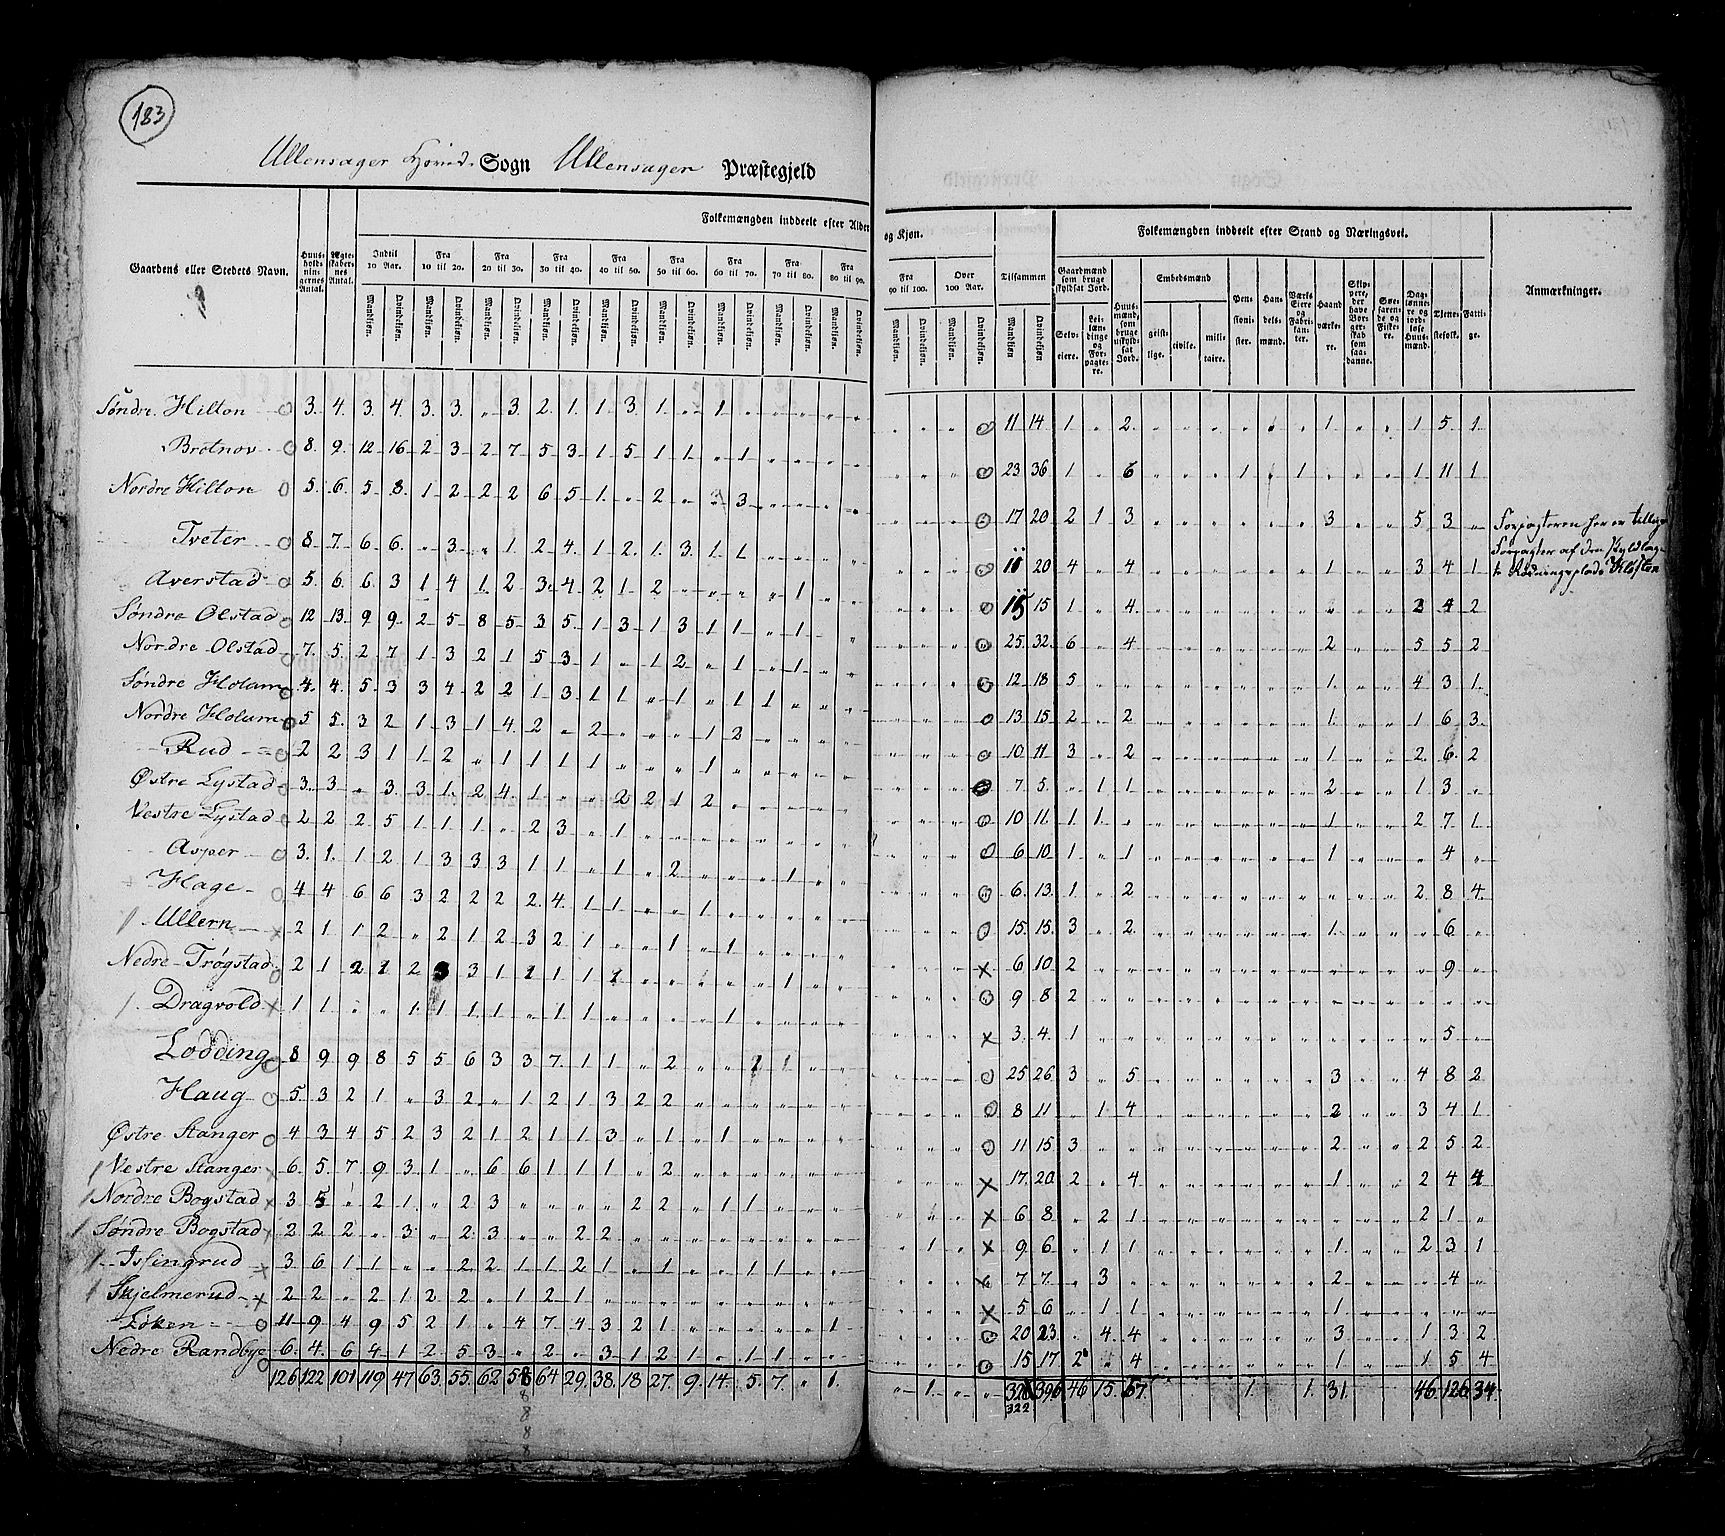 183
Ullensager Hoved Sogn Ullensager Præstegjeld
Folkemængden inddeelt efter Alder og Kjøn.
Folkemængden inddeelt efter Stand og Næringsvei.
Gaardens eller Stedets Navn.
Huusholdningernes Antal.
Ægteskabernes Antal.
Indtil 10 Aar.
Fra 10 til 20.
Fra 20 til 30.
Fra 30 til 40.
Fra 40 til 50.
Fra 50 til 60.
Fra 60 til 70.
Fra 70 til 80.
Fra 80 til 90.
Fra 90 til 100.
Over 100 Aar.
Tilsammen
Mandkjøn. Qvindekjøn.
Gaardmænd som bruge skyldsat Jord.
Selveiere.
Leilændinge og Forpagtere.
Huusmænd, som bruge uskyldsat Jord.
Embedsmænd
geistlige. civile. militaire.
Pensionister.
Handelsmænd.
Værks Eiere og Fabrikanter.
Haandværkere.
Skippere, der have Borgerskab som saadanne.
Søefarende og Fiskere.
Daglønnere og jordløse Huusmænd.
Tjenestefolk.
Fattige.
Anmærkninger.
Søndre Hilton 3. 4. 3. 4. 3. 3. " 3. 2. 1. 1. 3. 1. " 1 " " " " " " " " " 11 14 1 " 2 " " " " " " 1 " " 1 5 1
Brotnov 8. 9. 12 16 2 3 2 7 5 3 1 5 1 1 " 1 " " " " " " " " 23 36 1 " 6 " " " 1 " 1 " " " 1 11 1
Nordre Hilton 5. 6. 5. 8. 1 2 2 2 6 5 1 " 2 " 3 " " " " " " " " 17 20 2 1 3 " " " " " " 3 " " 5 3 "
Forpagteren her er tillige
Forpagter af den
Tveter 8 7 6 6 " 3 " 1 2 4 1 2 1 3 1 1 " " " " " " " " 11 20 4 " 4 " " " " " " 1 " " 3 4 1
Averstad 5. 6. 6. 3 1 4 1 2 3 4 2 1 2 " " " " 1 " " " " " " 15 15 1 " 4 " " " " " " " " " 2 4 2
Søndre Olstad 12 13 9 9 2 5 8 5 3 5 1 3 1 3 1 1 " 1 " " " " " " 25 32 6 " 4 " " " " " " 2 " " 5 5 2
Nordre Olstad 7. 5. 2 7 1 3 2 1 5 3 1 " 1 2 " 1 " 1 " " " " " " 12 18 5 " " " " " " " " 1 " " 4 3 1
Søndre Holum 4. 4. 5 3 3 4 2 2 1 3 1 1 " 1 " 1 1 " " " " " " " 13 15 2 " 2 " " " " " " 1 " " 1 6 3
Nordre Holum 5 5. 3 2 1 3 1 4 2 " 2 " " " 1 2 " " " " " " " " 10 11 3 " 2 " " " " " " 1 " " 2 6 2
Rud 2 2 3 1 1 2 " 1 1 1 1 " " " 1 " " " " " " " " " 7 5 " 1 1 " " " " " " 2 " " 1 3 "
Østre Lystad 3. 3 " 3 3 1 2 4 1 " " 2 2 1 2 " " " " " " " " " 10 11 1 1 " " " " " " " 1 " " 2 7 1
Vestre Lystad 2 2 2 5 1 1 1 " 2 3 " 1 " " " " " " " " " " " " 6 10 1 " 1 " " " " " " 1 " " " 4 "
Asper 3. 1. 1 2 1 3 3 3 1 1 " 1 " 2 " " " 1 " " " " " " 6 13 1 " 2 " " " " " " " " " 2 8 4
Hage 4 4 6 6 3 2 2 2 2 4 1 1 " " 1 " " " " " " " " " 15 15 3 " 2 " " " " " " 1 " " " 6 "
Ullern 2 1 1 2 " 2 1 2 3 2 1 " " 1 " 1 " " " " " " " " 6 10 2 " " " " " " " " " " " " 9 "
Nedre Trøgstad 2 1 2 1 2 3 3 1 1 1 1 1 " " " " " 1 " " " " " " 9 8 2 " " " " " " " " " " " " " "
Dragvold 1 1 " " 1 1 1 1 " 1 1 " " " " 1 " " " " " " " " 3 4 1 " " " " " " " " " " " " 5 "
Lodding 8 9 9 8 5 5 6 3 3 7 1 1 " 2 " " 1 1 " " " " " " 25 26 3 " 5 " " " " " " 3 " " 4 8 2
Haug 5. 3 2 1 " 3 2 " 1 2 1 3 2 2 " " " " " " " " " " 8 11 " 1 4 " " " " " " 2 " " 3 4 1
Østre Stanger 4 3 4 5 2 3 2 1 2 1 1 3 " 1 " 1 " " " " " " " " 11 15 3 " " " " " " " " 2 " " 2 5 2
Vestre Stanger 6. 5. 7 9 3 1 " 6 6 1 1 1 " 2 " " " " " " " " " " 17 20 2 " 4 " " " " " " 1 " " 2 4 4
Nordre Bogstad 3 5 " 2 1 " 2 3 " " " " 2 2 " 1 1 " " " " " " " 6 8 " 2 1 " " " " " " " " " 2 1 "
Søndre Bogstad 2 2 2 " 3 " 2 3 " " 2 2 " " " " " " " " " 1 " " 9 6 " 1 1 " " " " " " 1 " " 2 3 1
Islingrud 3 6 1 1 " " 2 2 1 1 2 1 " 1 " " 1 1 " " " " " " 7 7 " 3 " " " " " " " 2 " " " 4 "
Skjelmerud 2 2 " 2 1 2 2 " 1 2 1 " " " " " " " " " " " " " 5 6 " 1 1 " " " " " " 1 " " " " "
Løken 11 9 4 9 5 2 1 " 4 7 4 3 2 1 " " " " " 1 " " " " 20 23 " 4 4 " " " " " " 3 " " 1 3 2
Nedre Randbye 6. 4. 6 4 1 2 5 3 " 2 " 3 1 2 1 " 1 1 " " " " " " 15 17 2 " 4 " " " " " " 1 " " 1 5 4
126 122 101 119 47 63 55 62 58 64 29 38 18 27 9 14 5 7 " 1 " 1 " " 326 396 46 15 67 1 1 31 46 126 34
322
8
8
8